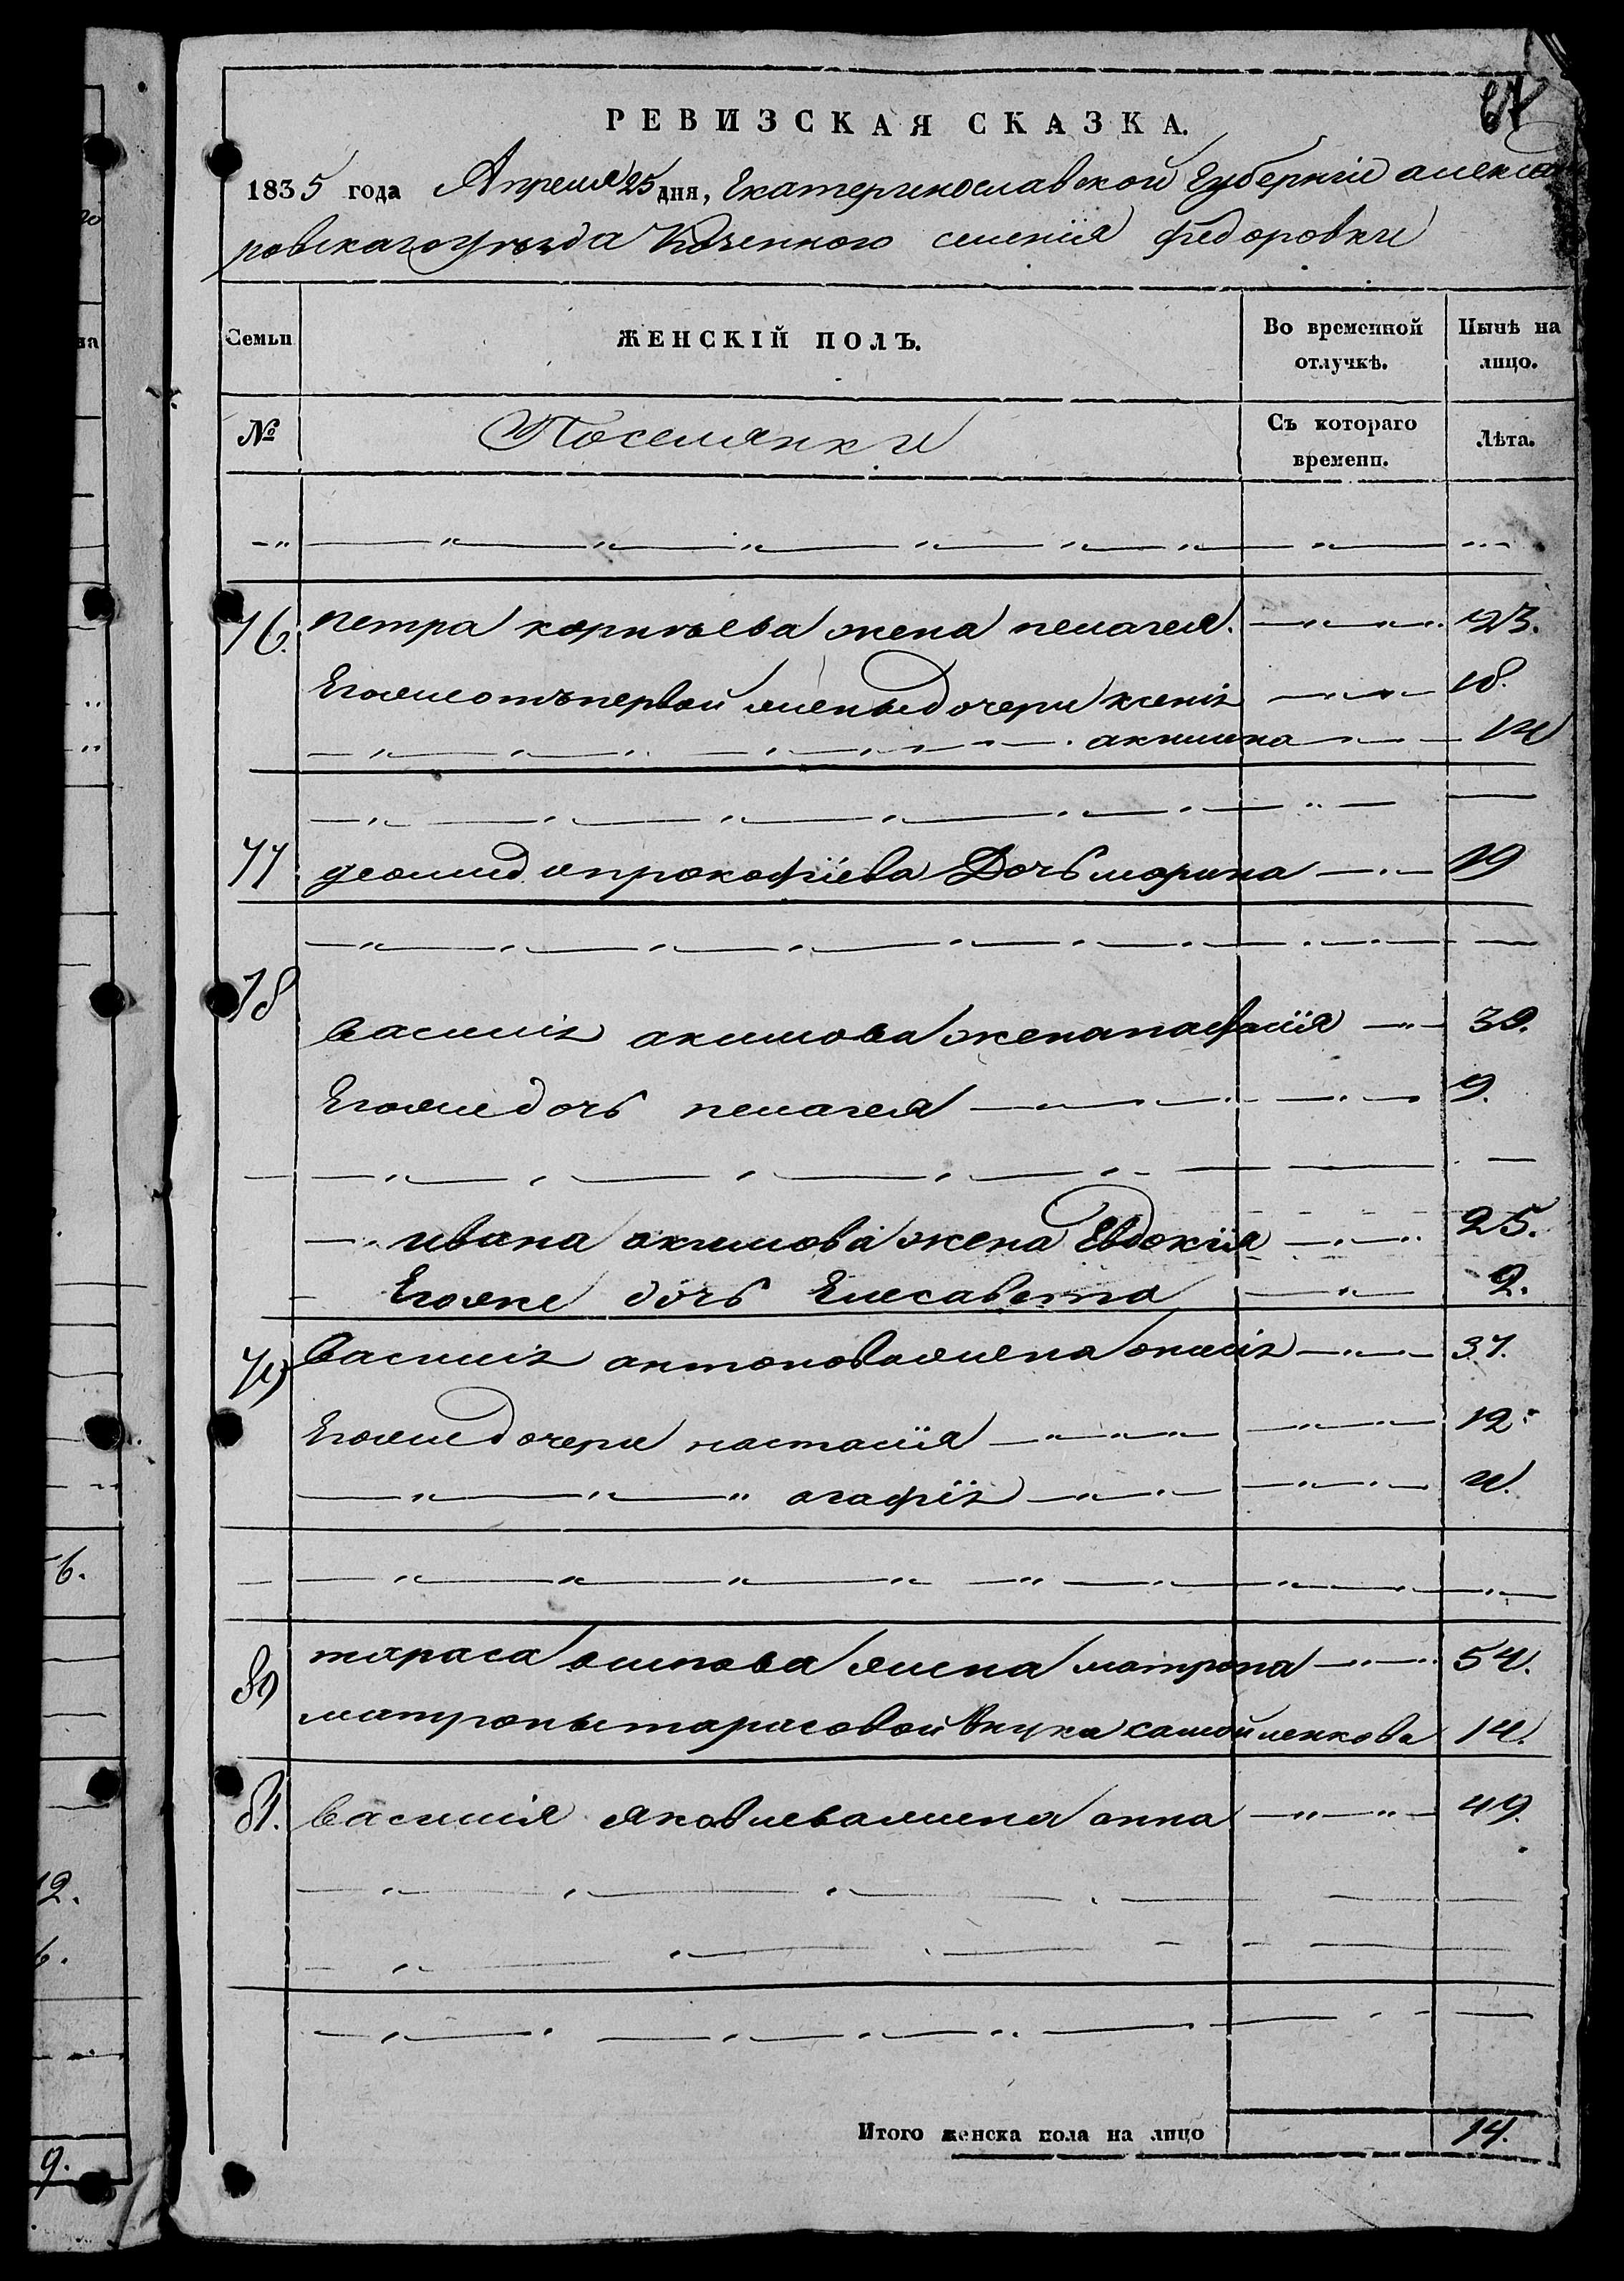 67
РЕВИЗСКАЯ СКАЗКА.
1835 года Апреля 25 дня, Екатеринославской Губерніи алексан
ровскагоуезда Казенного селенія федоровки
Семьи
ЖЕНСКІЙ ПОЛЪ.
Во временной отлучкѣ.
Нынѣ на лицо.
№
Поселянки
Съ котораго времени.
Лѣта.
76. петра корнѣева жена пелагея. 23.
Егожеотъпервой женыдочери ксенія 18.
акилина 14
77. прокофіева Дочь марина 19
78
василія акимова жена 39.
Егожедочь пелагея 9.
ивана акимова жена Евдокія 25.
Егоже дочь Елесавета 2.
79 василія антоноважена 37.
Егожедочери настасія 12.
агафія 4.
80 тараса осипова жена матрона 54.
матронытарасовой внука самойленкова 14.
81. василія яковлеважена анна 49.
Итого женска пола на лицо 14.
6.
12.
6.
9.